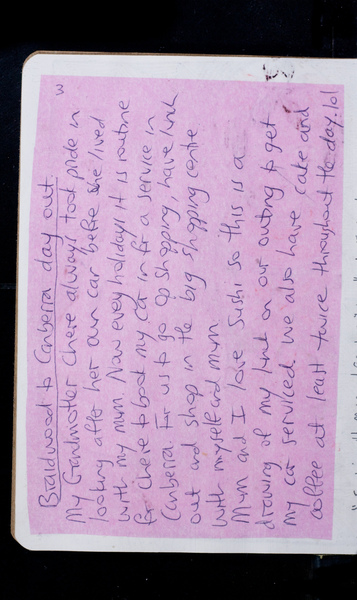 3
Braidwood to Canberra day out
My Grandmother Cherie always took pride in
looking after her own car before she lived
with my mum. Now every holidays it is routine
for Cherie to book my car in for a service in
Canberra. For us to go op shopping, have lunch
out and shop in the big shopping centre
with myself and mum.
Mum and I love Sushi so this is a
drawing of my lunch on our outing to get
my car serviced. We also have cake and
coffee at least twice throughout the day. lol